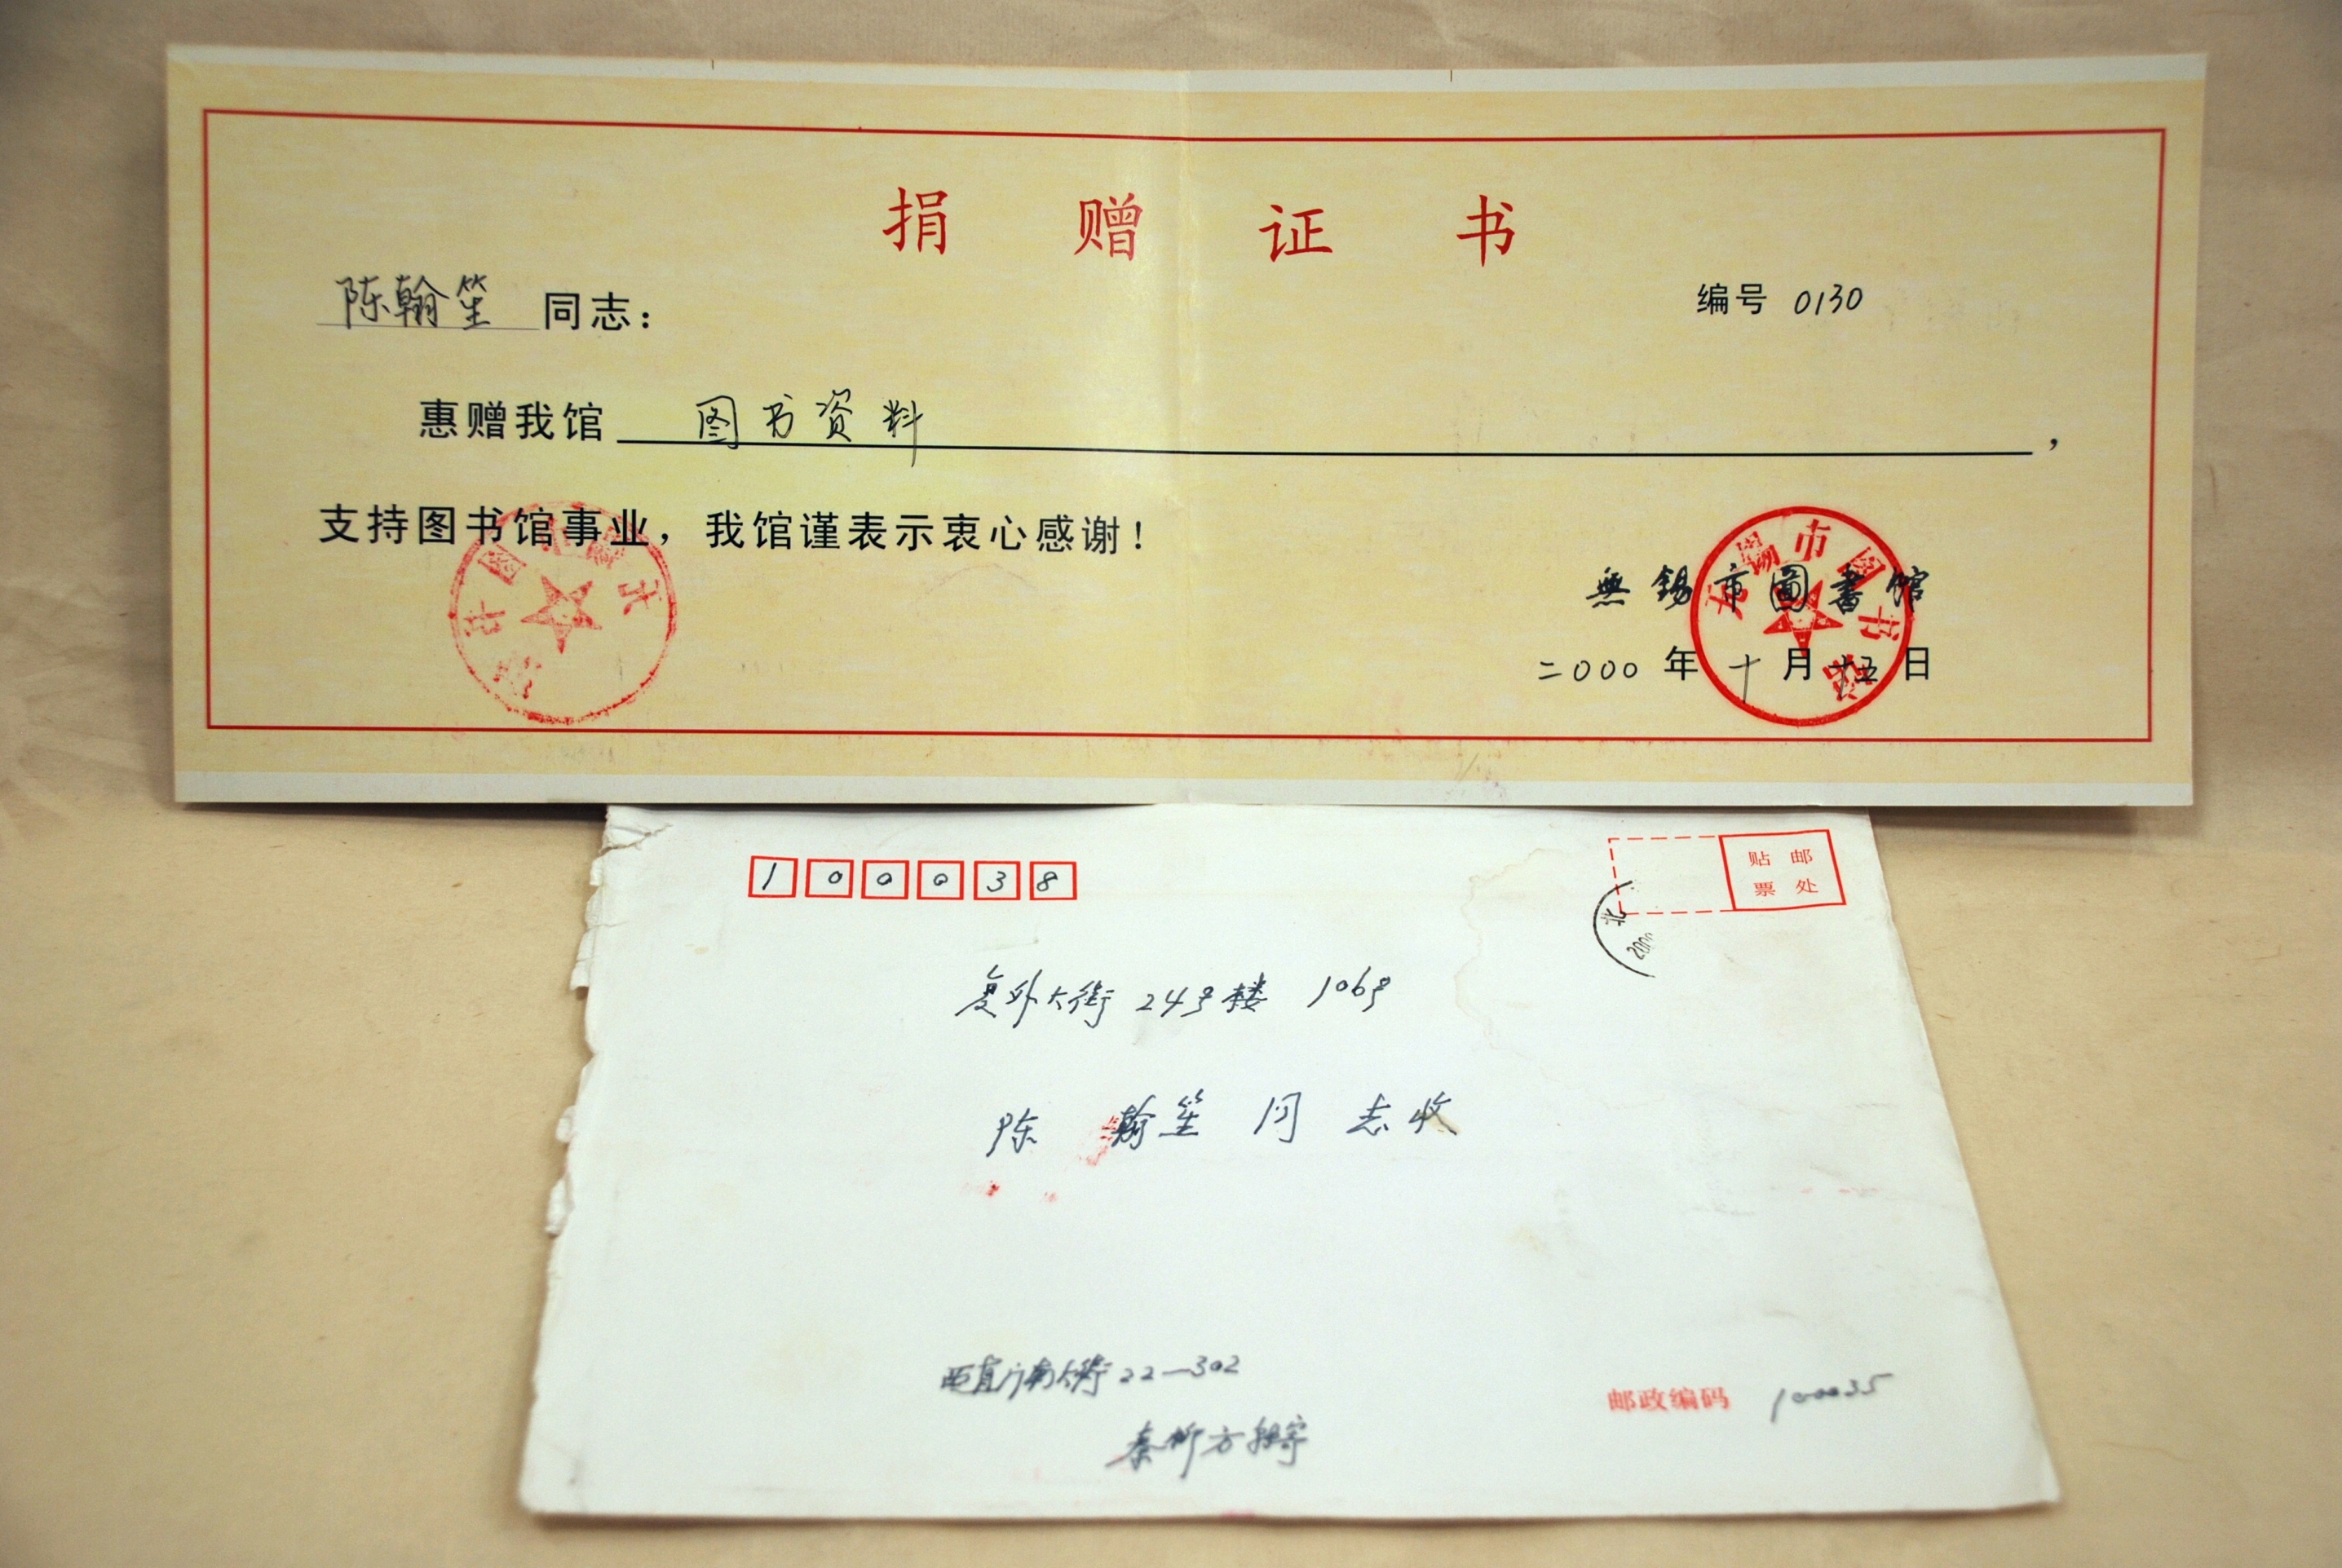 捐赠证书
陈翰笙同志：
编号 0130
惠赠我馆 图书资料，
支持图书馆事业，我馆谨表示衷心感谢！
無锡市圖書馆
无锡市图书馆
二000年十月十五日
100038
邮票
贴处
北
200
复外大街24号楼 106号
陈翰笙同志收
西直门南大街22—302
秦柳方
邮政编码 100035